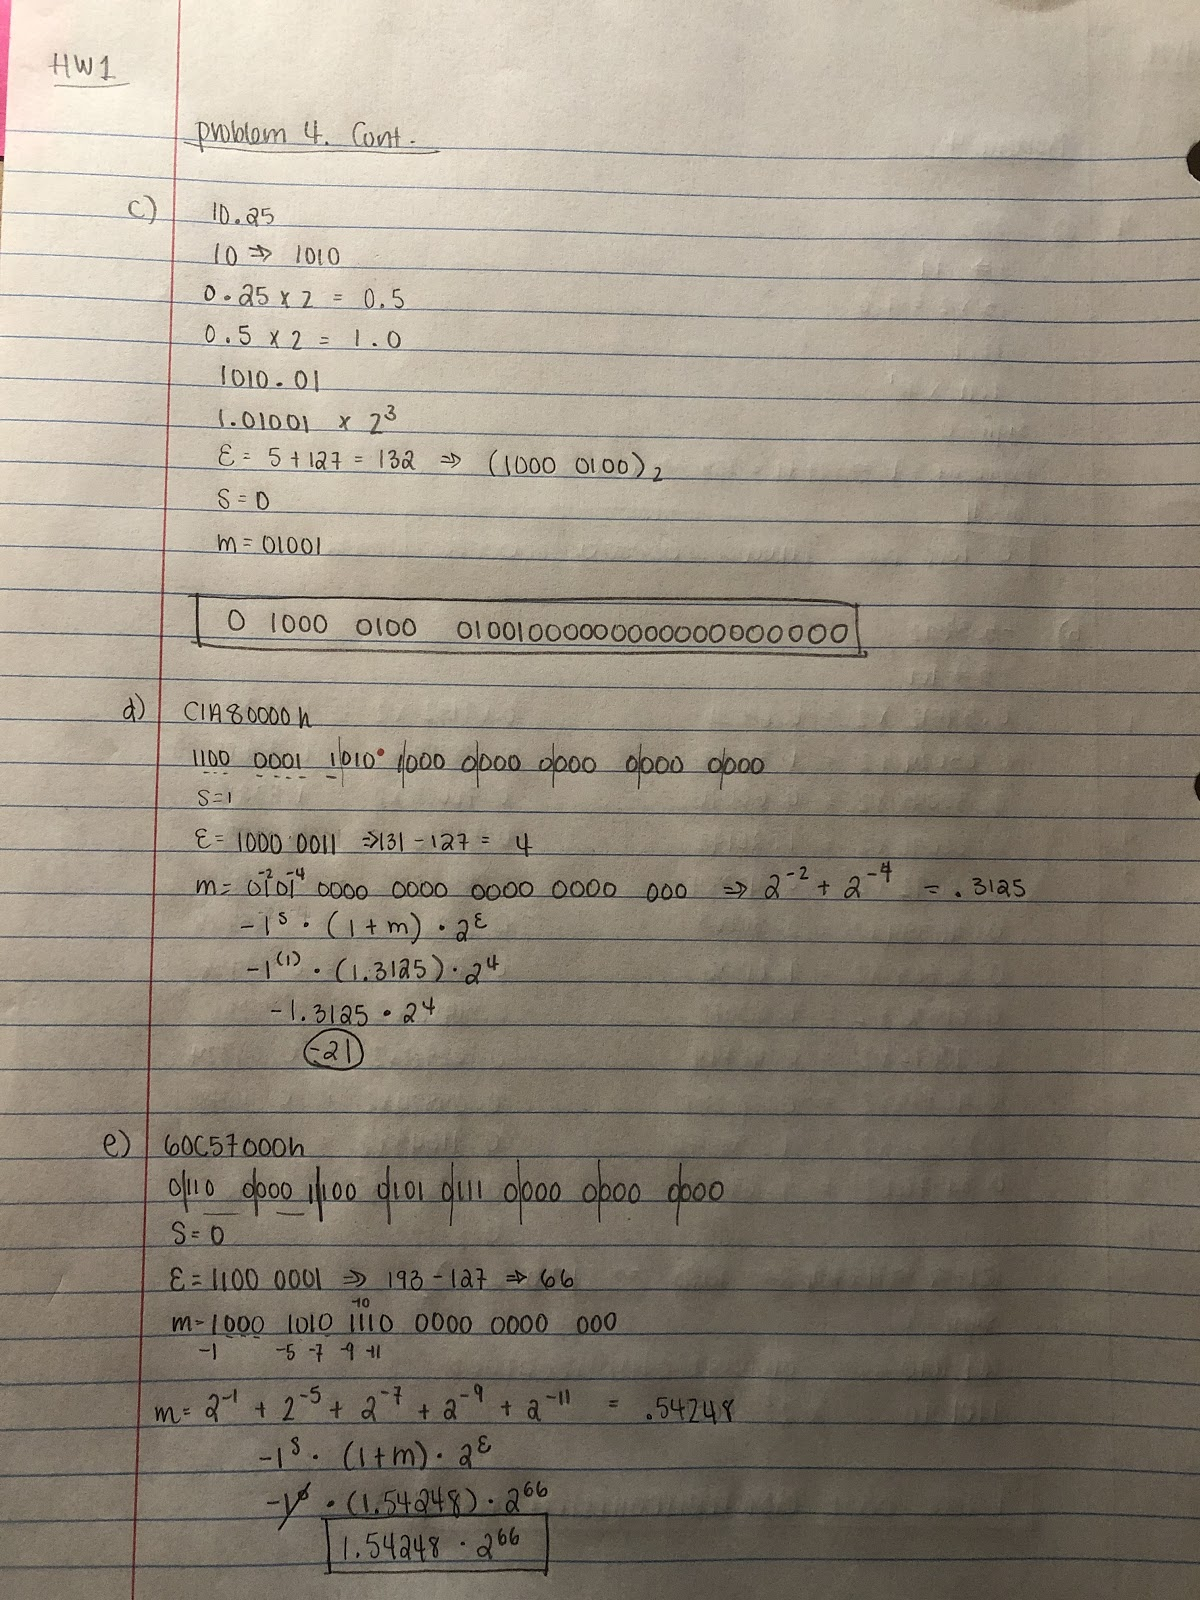 HW1
problem 4. Cont.
c) 10.25
10 ⇒ 1010
0.25 x 2 = 0.5
0.5 x 2 = 1.0
1010.01
1.01001 x 2³
ε = 5+127 = 132 ⇒ (1000 0100)₂
S=0
m=01001
0 1000 0100 01001000000000000000000
d) C1A80000h
1100 0001 1010 1000 0000 0000 0000 0000
S=1
ε = 1000 0011 ⇒ 131-127 = 4
-2 -4
m= 0101 0000 0000 0000 0000 000 ⇒ 2⁻² + 2⁻⁴ = .3125
-1ˢ · (1+m) · 2^ε
-1⁽¹⁾ · (1.3125) · 2⁴
-1.3125 · 2⁴
-21
e) 60C57000h
0110 0000 1100 0101 0111 0000 0000 0000
S=0
ε = 1100 0001 ⇒ 193-127 ⇒ 66
-10
m=1000 1010 1110 0000 0000 000
-1 -5 -7 -9 -11
m= 2⁻¹ + 2⁻⁵ + 2⁻⁷ + 2⁻⁹ + 2⁻¹¹ = .54248
-1ˢ · (1+m) · 2^ε
-1⁰ · (1.54248) · 2⁶⁶
1.54248 · 2⁶⁶